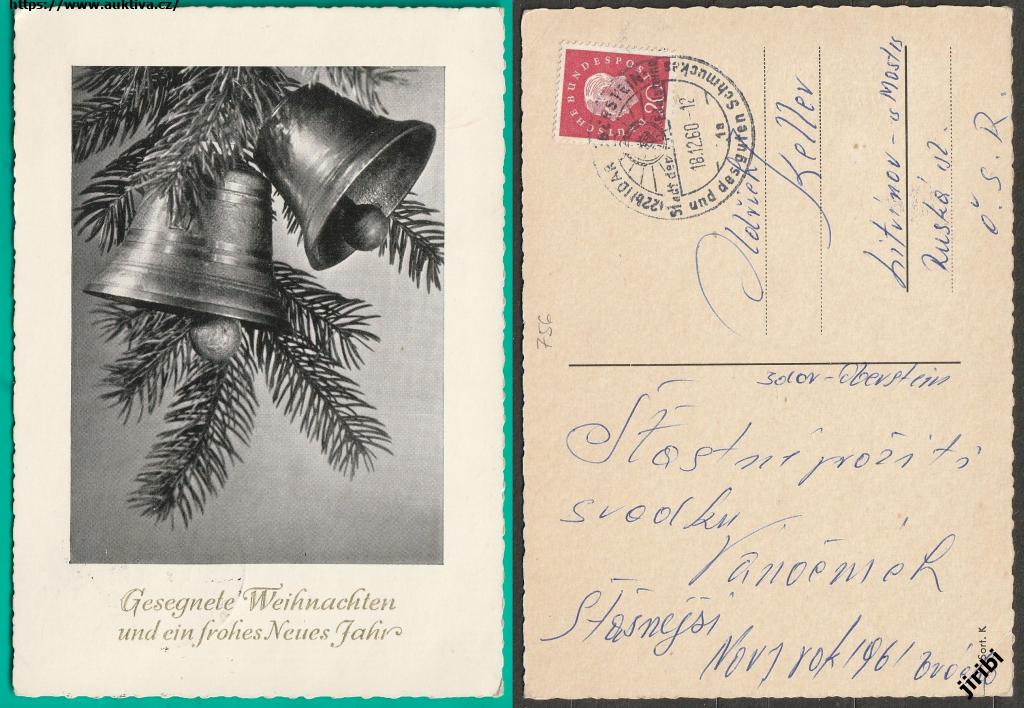 https://www.auktiva.cz/
Gesegnete Weihnachten
und ein frohes Neues Jahr
DEUTSCHE BUNDESPOST
20
(22b) IDAR-OBERSTEIN
1a
18.12.60-12
Stadt der
und des guten Schmuckes
Oldřich
Keller
Litvínov - u Mostu
Ruská ul.
Č. S. R.
756
Idar-Oberstein
Šťastné prožití
svadku
Vánočních
Stasnejši
Nový rok 1961
Sort. K
jiribi